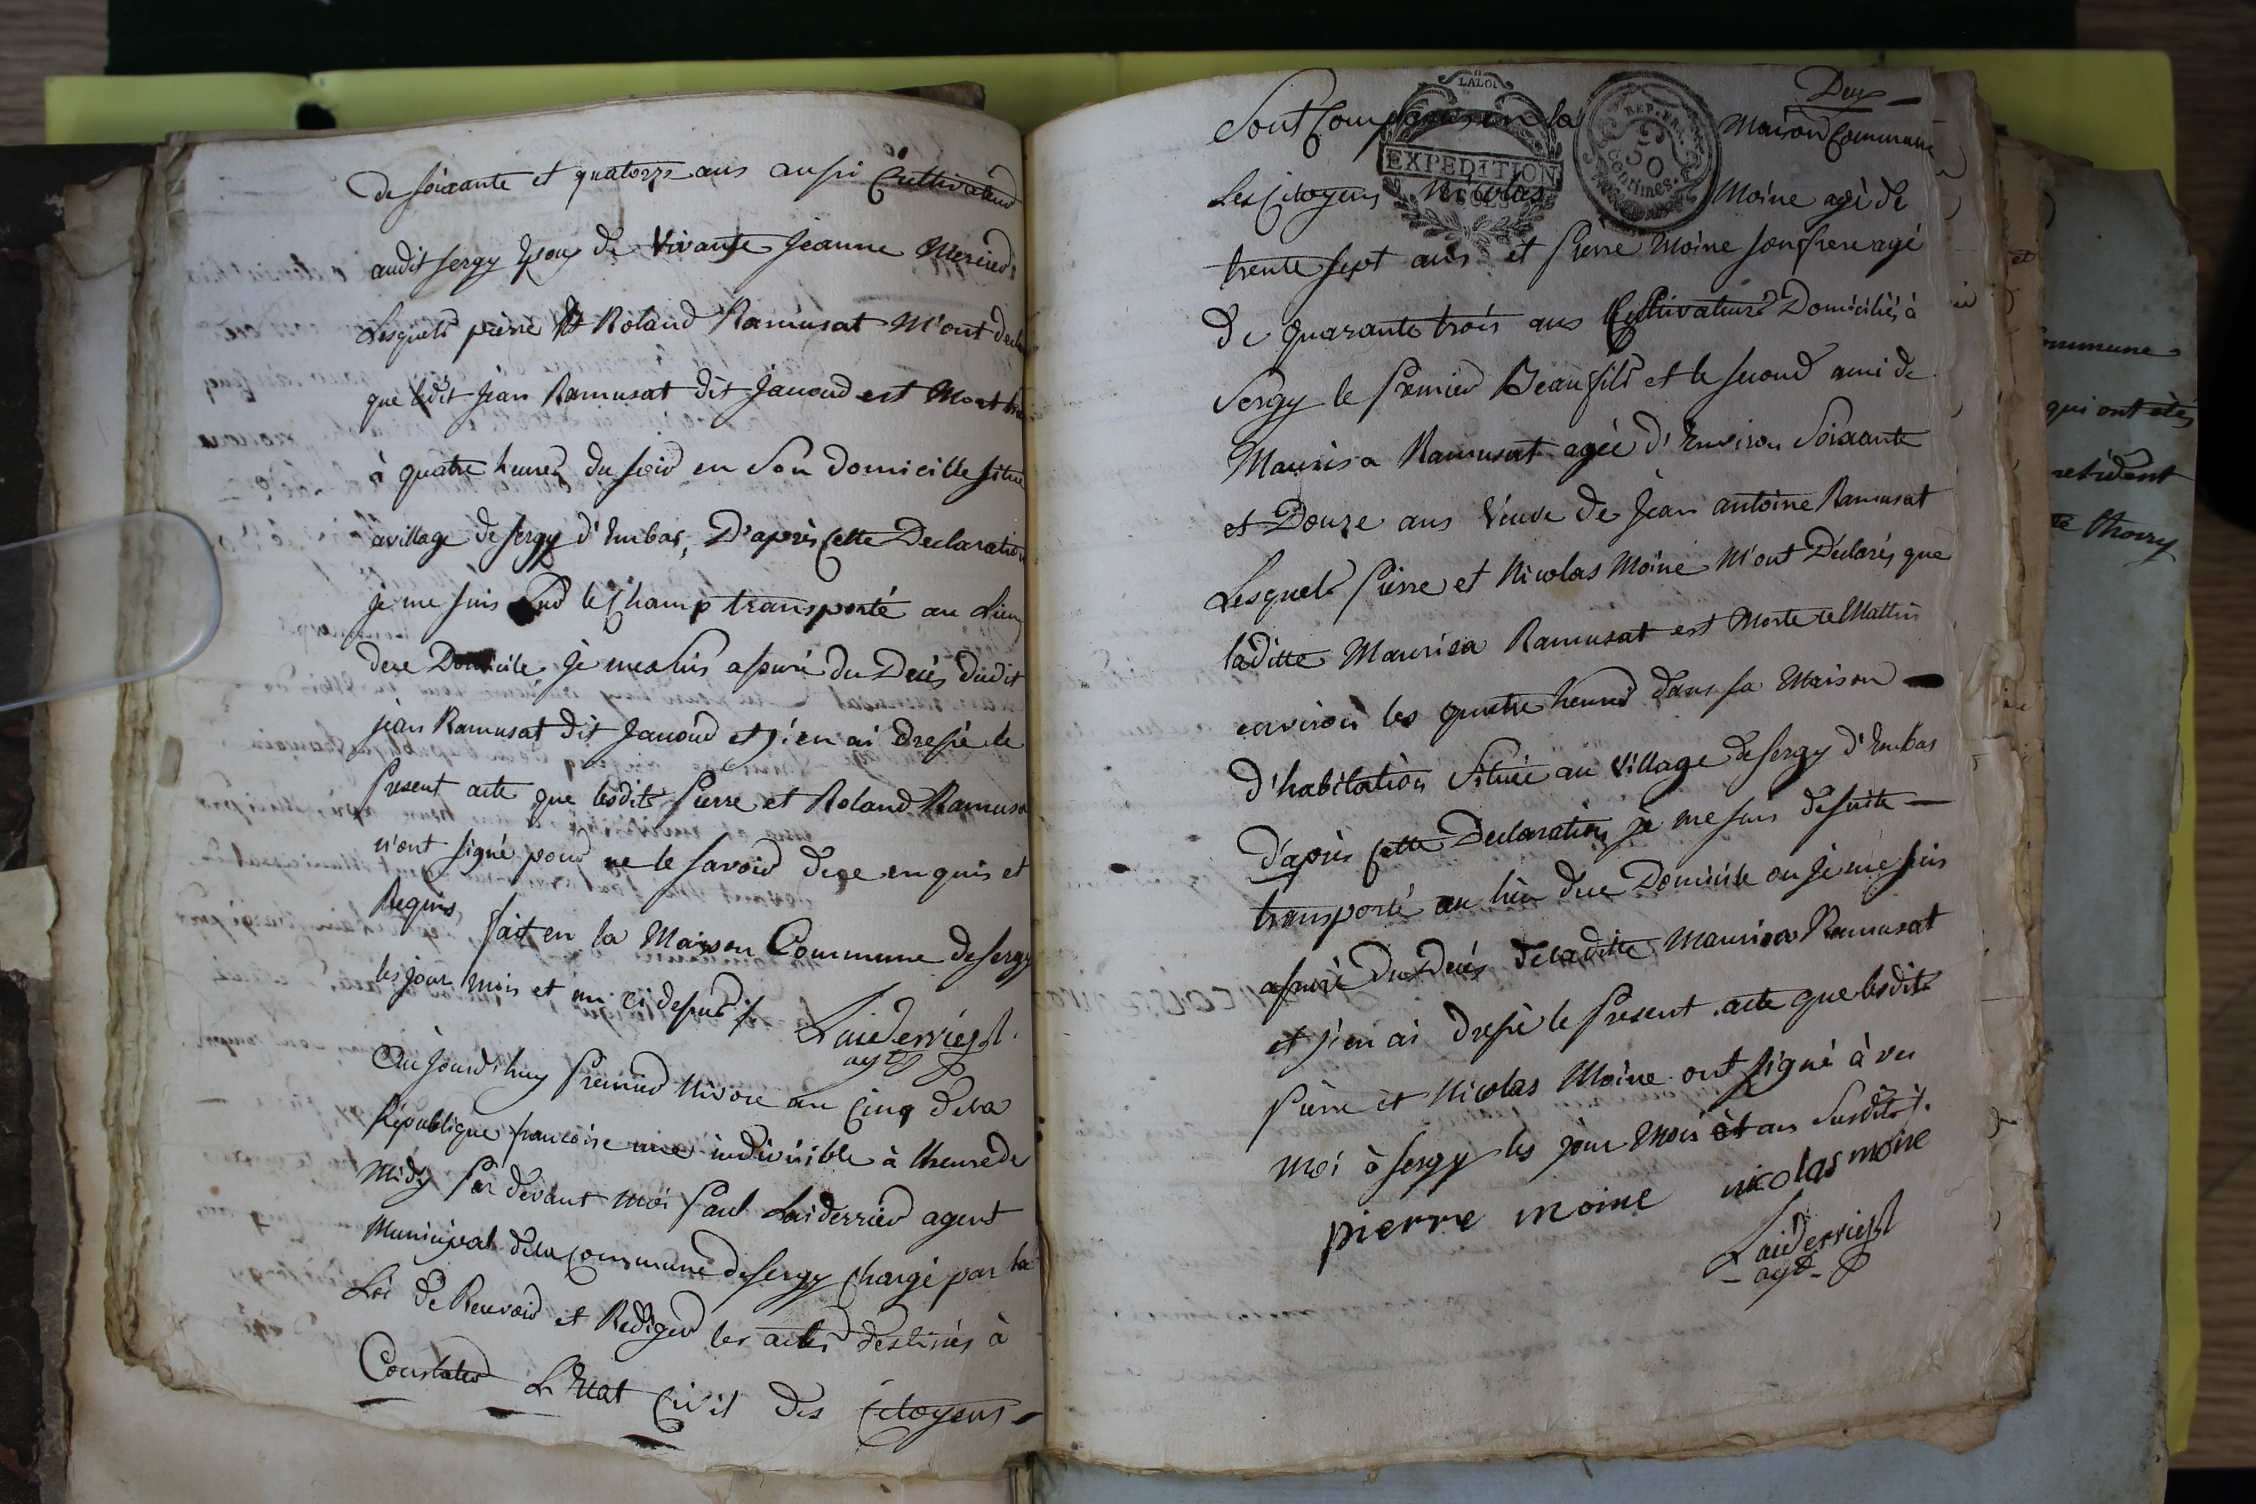 de soixante et quatorze ans aussi Cultivateur
audit sergy Epoux de vivante Jeanne Mercier
Lesquels pierre et Roland Ramusat M'ont declaré
que ledit Jean Ramusat dit Janoud est Mort hier
à quatre heures du soir en Son domicille situé
a village de sergy d'Embas, D'après Cette Declaration
je me suis sur le Champ transporté au Lieu
de ce Domicile je me suis assuré du Decès dudit
jean Ramusat dit Janoud et j'en ai dressé le
Present acte que lesdits Pierre et Roland Ramusat
n'ont signé pour ne le savoir de ce enquis et
Requis, fait en la Maison Commune de sergy
les jour mois et an ci dessus
Laiderrier
agt
Aujourd'huy Premier Nivose an Cinq de la
République francoise une indivisible à l'heure de
Midy Par devant Moi Paul Laiderrier agent
Municipal de la Commune de sergy Chargé par la
Loi de Recevoir et Rediger les actes destinés à
Constater L'Etat Civil des Citoyens
Deux
Sont Comparus en la Maison Commune
LALOI
EXPEDITION
REP. FRA.
50
centimes.
Les Citoyens Nicolas Moine agé de
trente sept ans et Pierre Moine son frere agé
de quarante trois ans Cultivateurs Domiciliés à
Sergy le Premier Beaufils et le second ami de
Maurisa Ramusat agée d'Environ Soixante
et Douze ans Veuve de Jean antoine Ramusat
Lesquels Pierre et Nicolas Moine M'ont Déclarés que
laditte Maurisa Ramusat est Morte ce Mattin
environ les quatre heures dans sa Maison
d'habitation Située au Village de sergy d'Embas
d'après Cette Déclaration je me suis de suite
transporté au lieu du ce Domicile ou je me suis
assuré du Decés de laditte Maurisa Ramusat
et j'en ai dressé le Present acte que lesdits
Pierre et Nicolas Moine ont signé à vec
Moi à sergy les jour Mois et an Susdits.
pierre moine nicolas moine
Laiderrier
agt
ommune
qui ont étés
résident
Thoiry